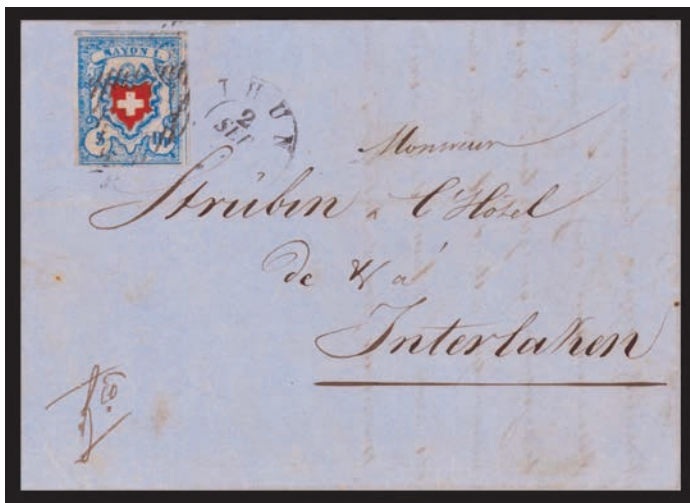 RAYON I
THUN
2
SEP
Monsieur
Strübin a l'Hôtel
de & a
Interlaken